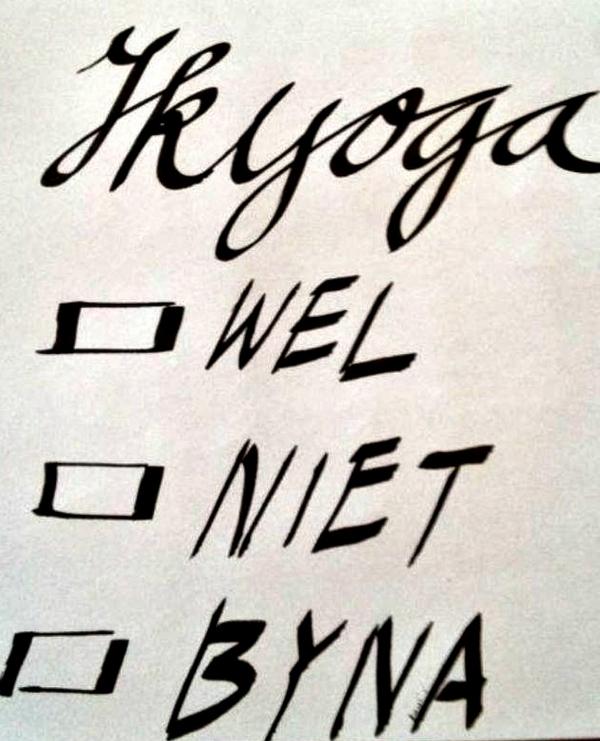 Ik yoga
WEL
NIET
BYNA